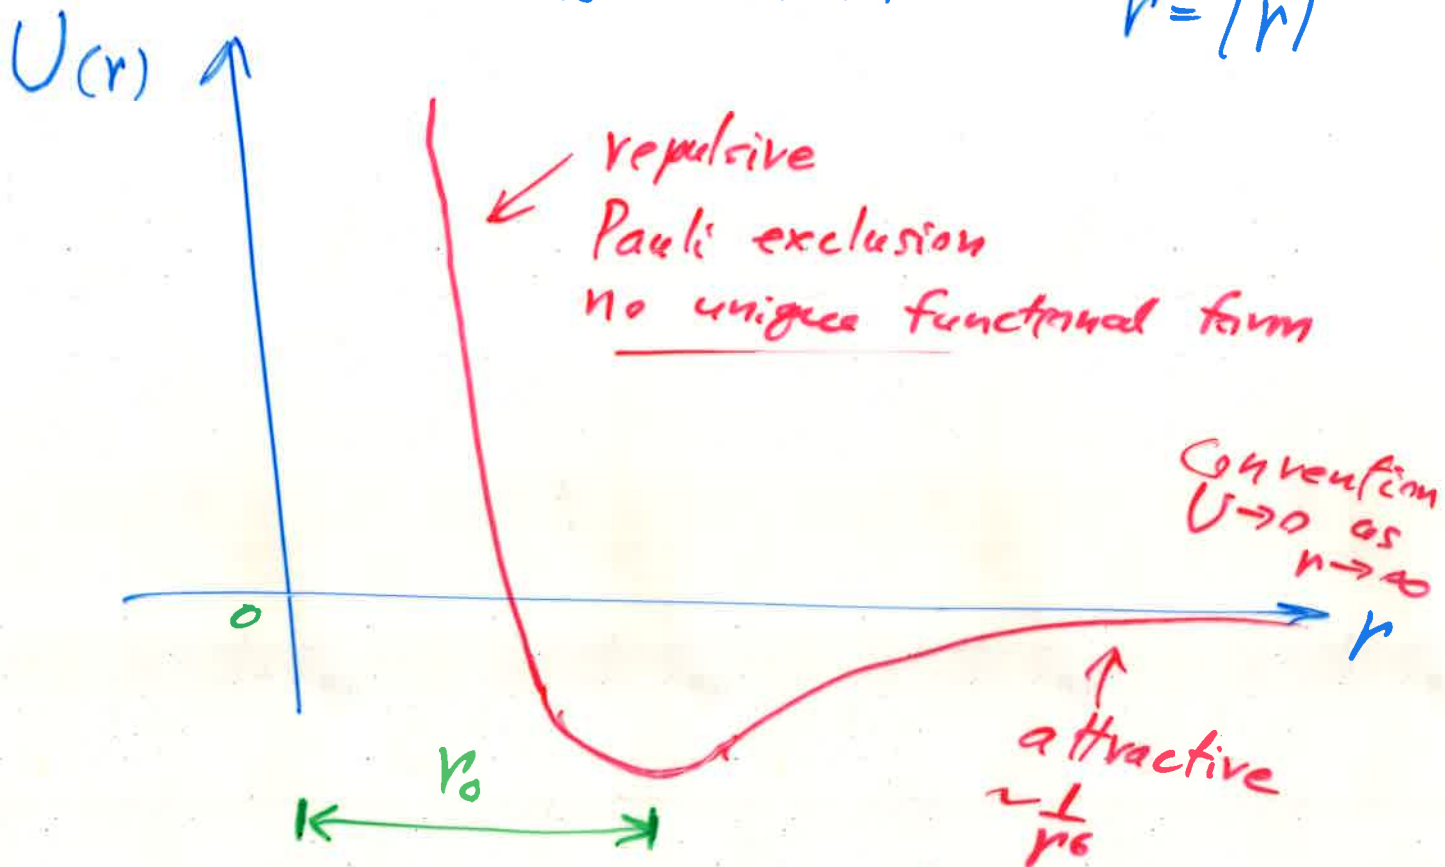 r = |r|
U(r)
repulsive
Pauli exclusion
no unique functional form
Convention
U→0 as
r→∞
0
r
attractive
~ 1/r6
r₀